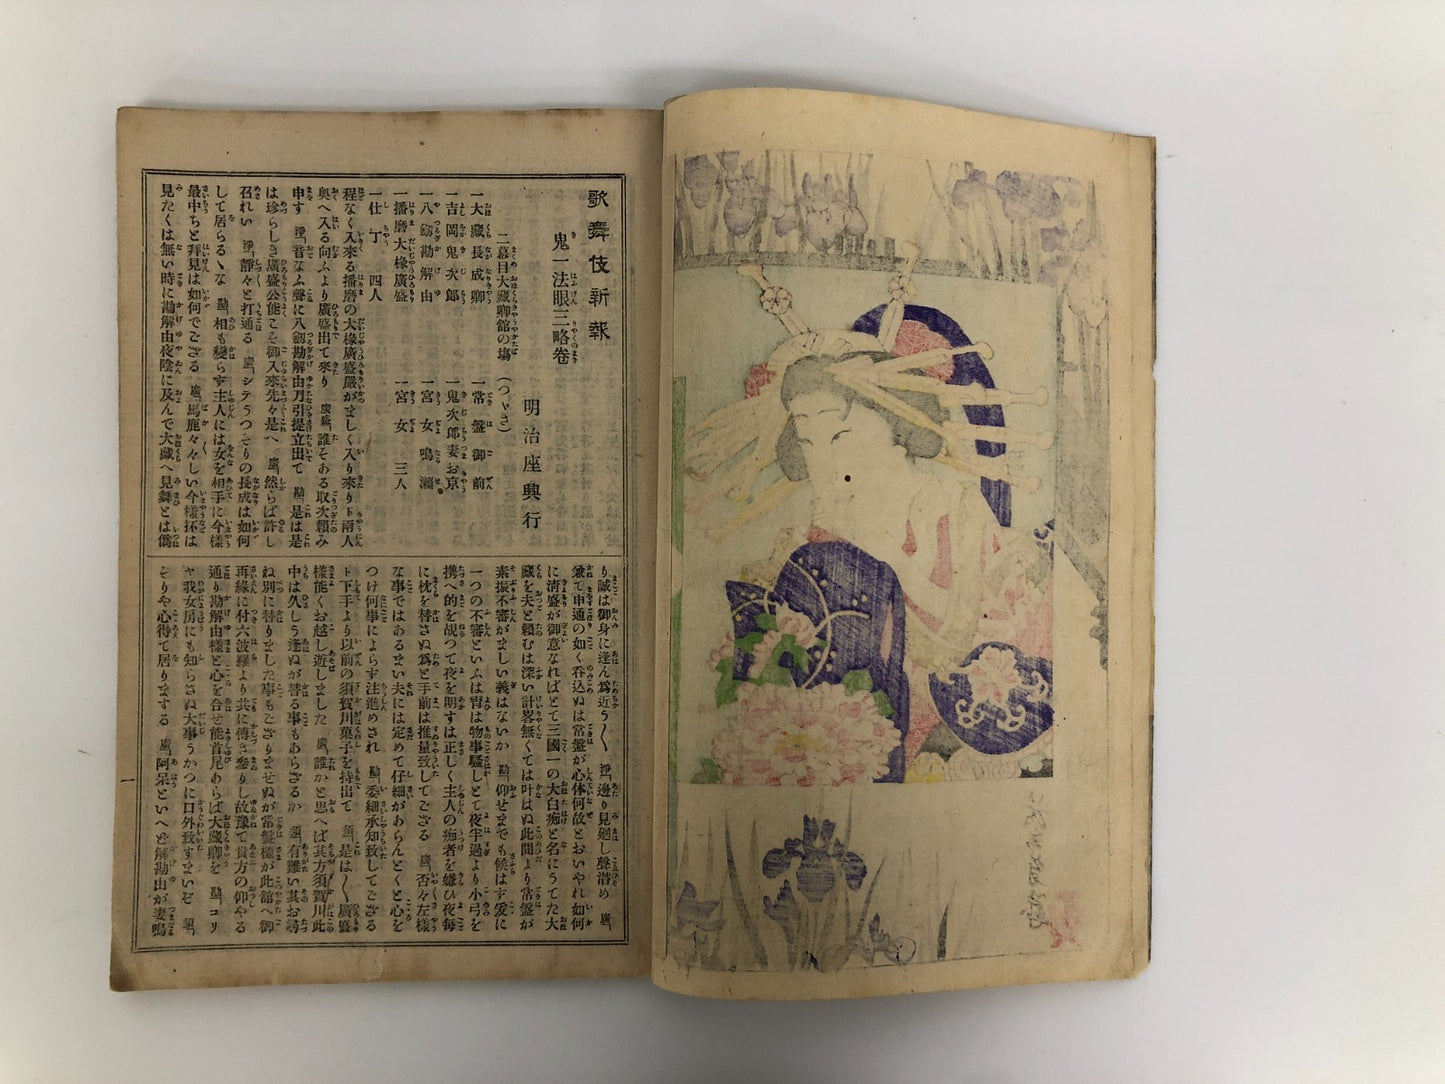 歌舞伎新報
鬼一法眼三略卷
明治座興行
二幕目大藏卿館の塲 (つゞき)
一大藏長成卿 一常盤御前
一吉岡鬼次郎 一鬼次郎妻お京
一八劔勘解由 一宮女鳴瀬
一播磨大椽廣盛 一宮女 三人
一仕丁 四人
程なく入來る播磨の大椽廣盛嚴がましく入り來りト兩人
奥へ入る向ふより廣盛出て來り 廣盛「誰そある取次頼み
申す 「音なふ聲に八劔勘解由刀引提立出て 勘「是は是
は珍らしき廣盛公能こそ御入來先々是へ 廣「然らば許し
召れい 「靜々と打通る 廣「シテうつそりの長成は如何
して居らるゝな 勘「相も變らす主人には女を相手に今樣
最中ちと拜見は如何でござる 廣「馬鹿々々しい今樣抔は
見たくは無い時に勘解由夜陰に及んで大藏へ見舞とは僞
り誠は御身に逢ん爲近う〱 「邊り見廻し聲潜め 廣「
兼て申通の如く呑込ぬは常盤が心体何故とおいやれ如何
に淸盛が御意なればとて三國一の大白痴と名にうてた大
藏を夫と賴むは深い計畧無くては叶はぬ此間より常盤が
素振不審がましい義はないか 勘「仰せまでも候はす爰に
一つの不審といふは宵は物事騷しとて夜半過より小弓を
携へ的を覘つて夜を明すは正しく主人の痴者を嫌ひ夜每
に枕を替さぬ爲と手前は推量致してござる 廣「否々左樣
な事ではあるまい夫には定めて仔細があらんとくと心を
つけ何事によらす注進めされ 勘「委細承知致してござる
ト下手より以前の須賀川菓子を持出て 須「是は〱廣盛
樣能くお越し遊しました 廣「誰かと思へば其方須賀川此
中は久しう逢ぬが替る事もあらざるか 須「有難い其お尋
ね別に替りました事もござりませぬが常盤樣が此館へ御
再緣に付六波羅より共に傅き參りし故豫て貴方の仰やる
通り勘解由樣と心を合せ能首尾あらば大藏卿を 勘「コリ
ヤ我女房にも知らさぬ大事うかつに口外致すまいぞ 須「
そりや心得て居りまする 廣「阿呆といへど解勘由が妻鳴
一